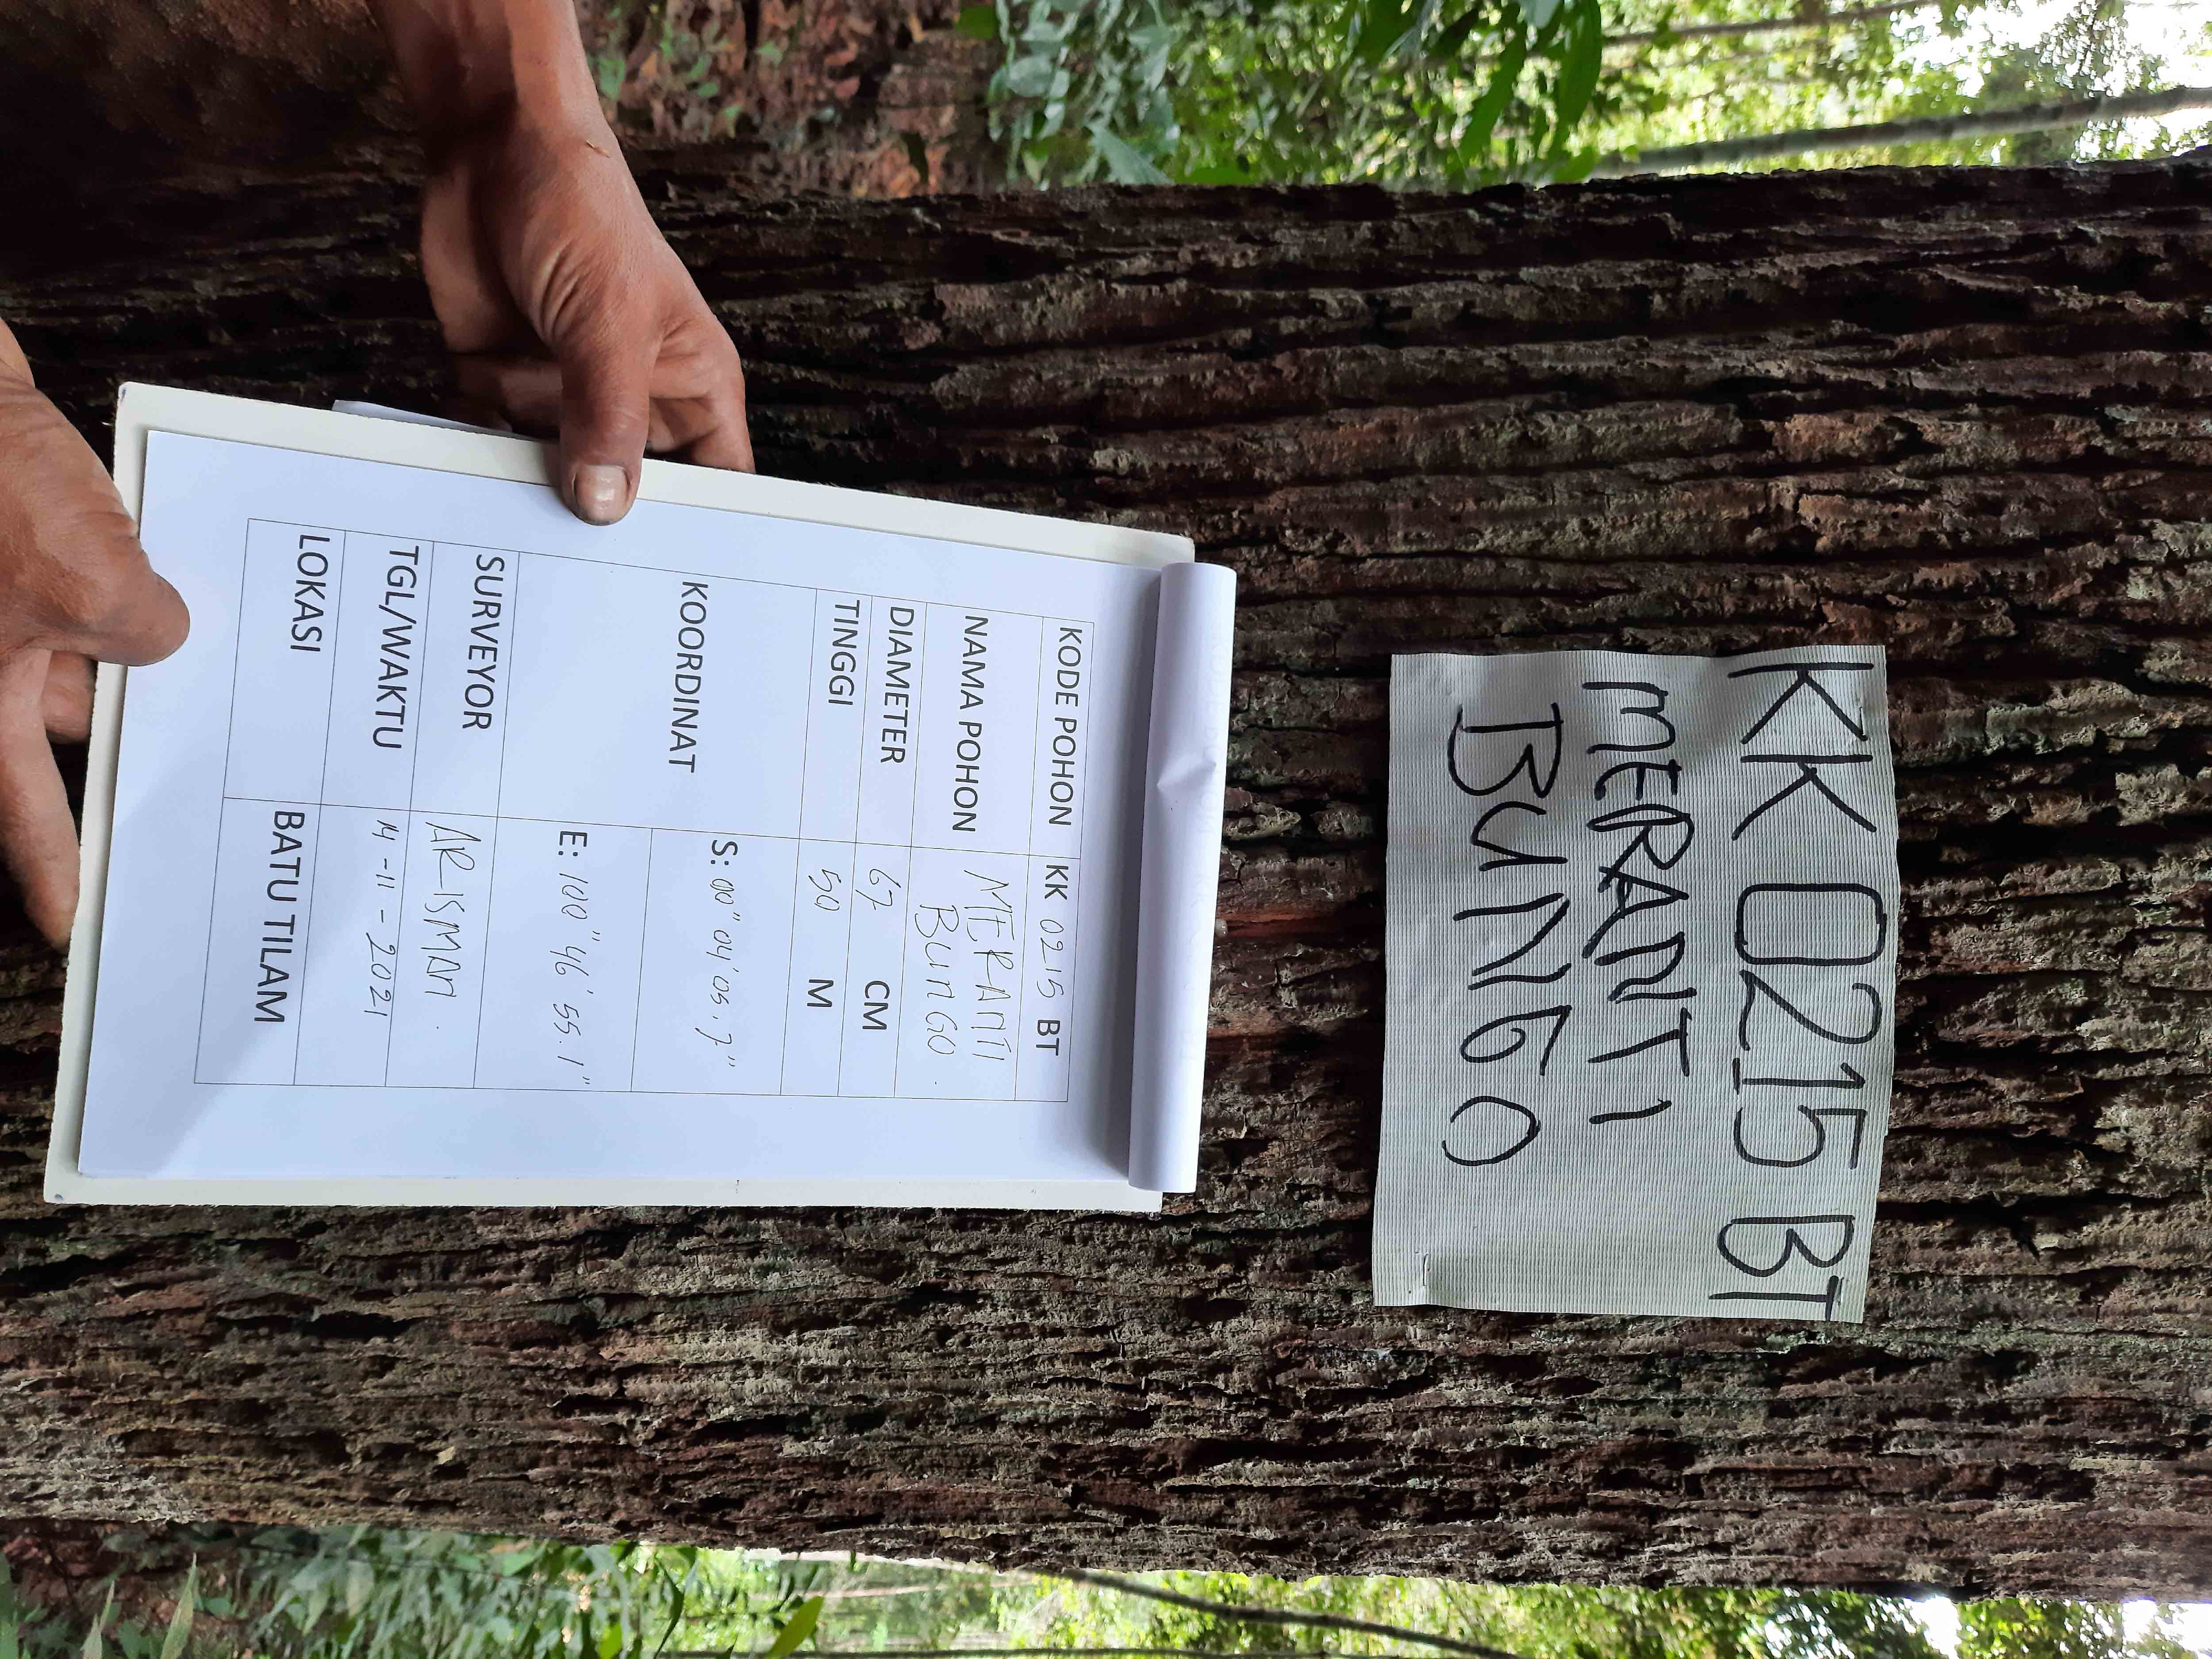 KK 0215 BT
MERANTI
BUNGO
KODE POHON KK 0215 BT
NAMA POHON MERANTI
BUNGO.
DIAMETER 67 CM
TINGGI 50 M
KOORDINAT S: 00" 04' 05,7"
E: 100" 46' 55.1"
SURVEYOR ARISMAN.
TGL/WAKTU 14-11-2021
LOKASI BATU TILAM